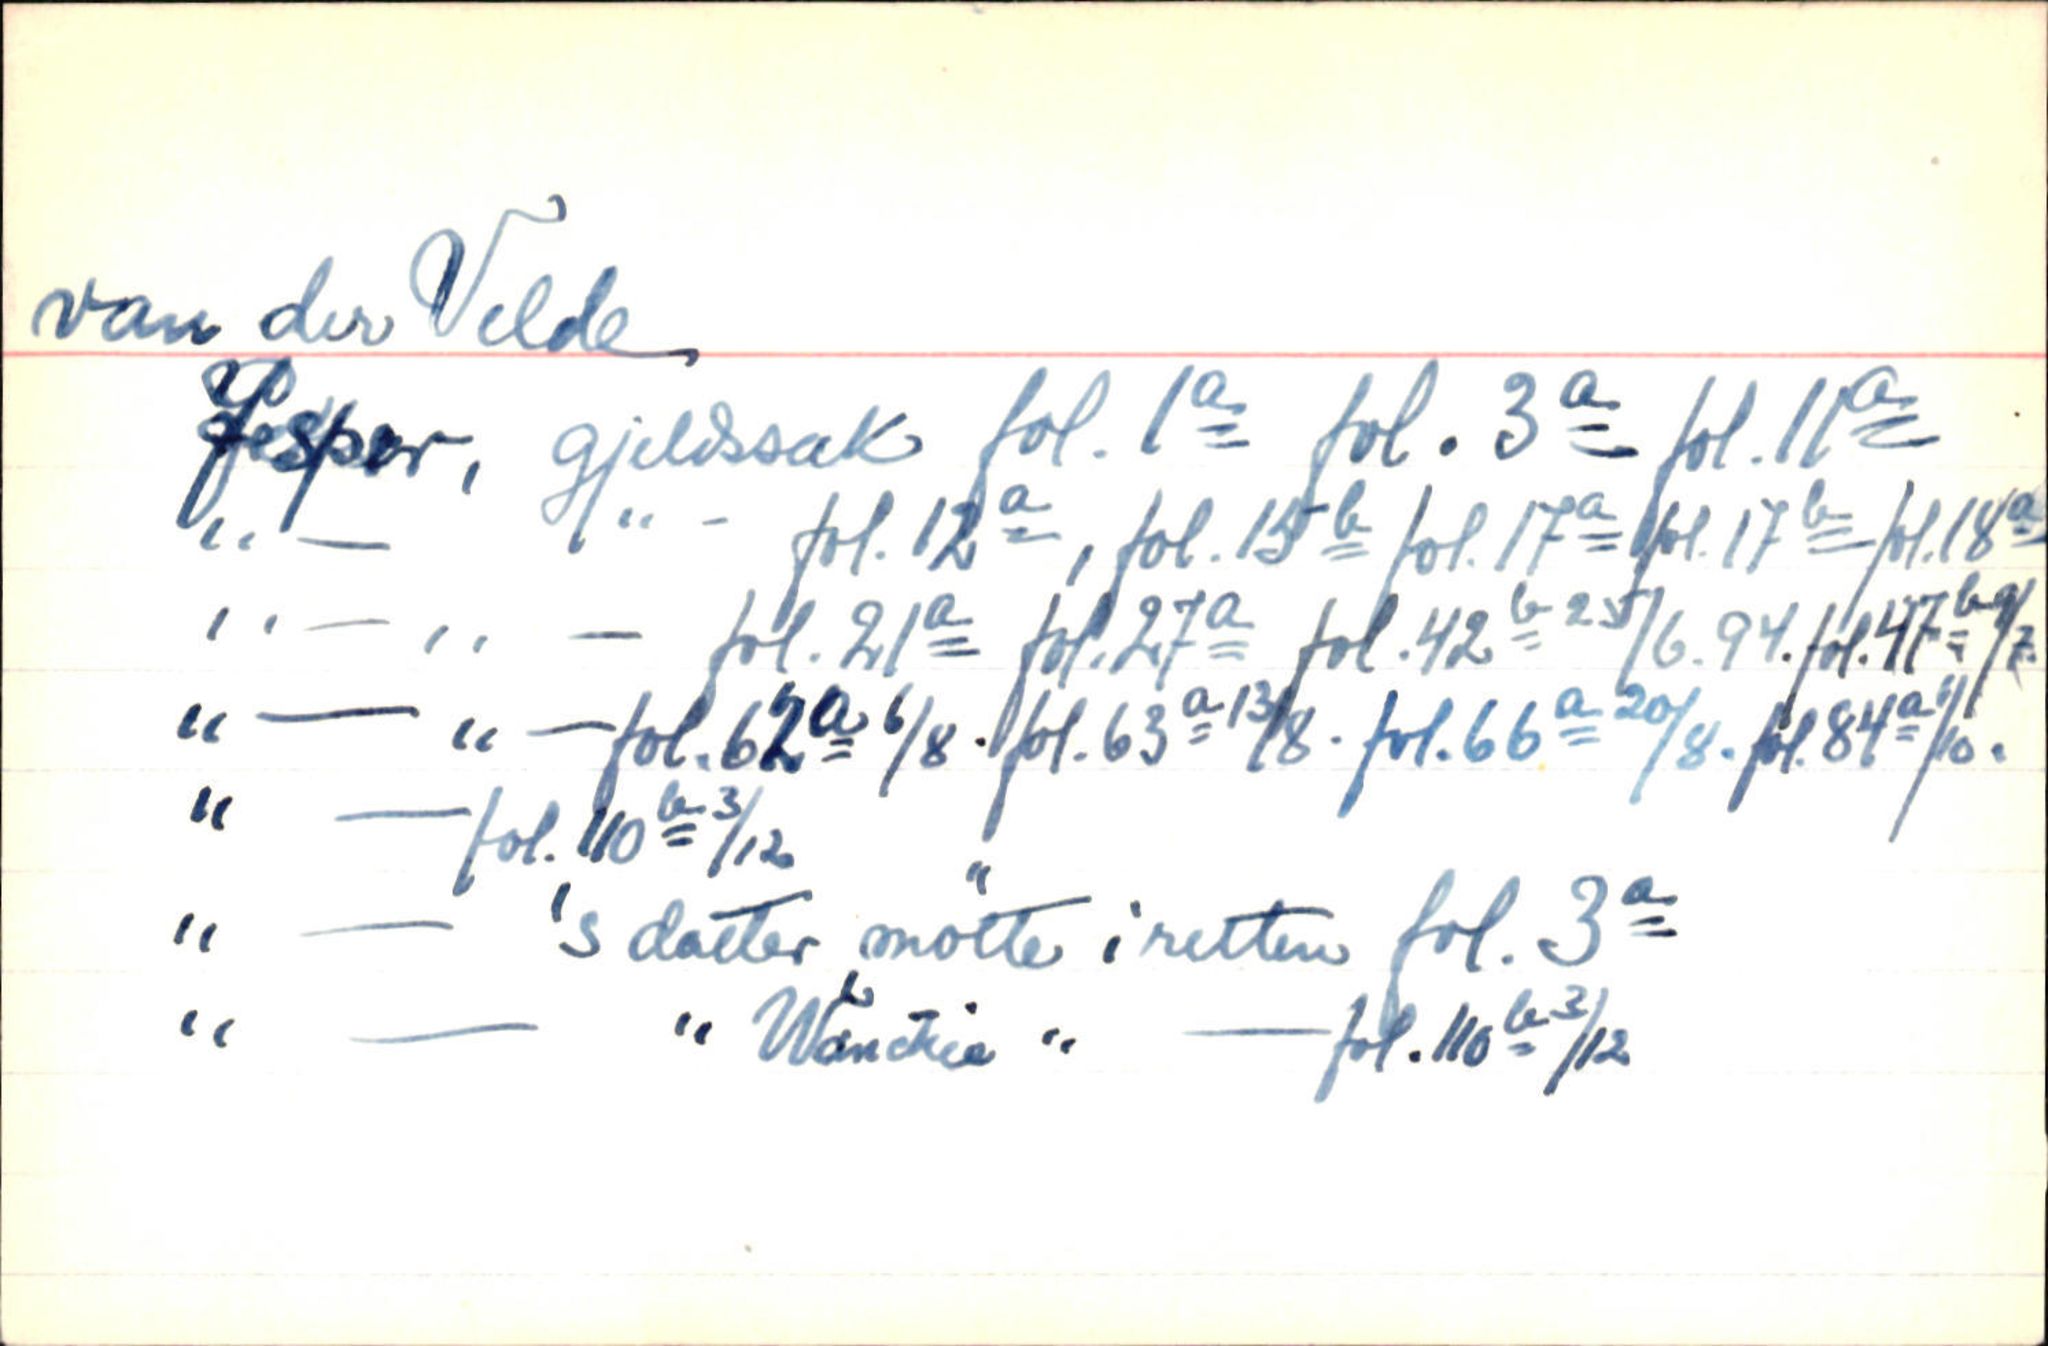 van der Velde
Jesper, gjeldssak fol. 1a fol. 3a fol. 11a
" — " - fol. 12a, fol. 15b fol. 17a fol. 17b fol. 18a
" — " — fol. 21a fol. 27a fol. 42b 25/6.94. fol. 47b 9/7.
" — " — fol. 62a 6/8. fol. 63a 13/8. fol. 66a 20/8. fol. 84a 1/10.
" — fol. 110b 3/12
" — 's datter mötte i retten fol. 3a
" — " " — fol. 110b 3/12